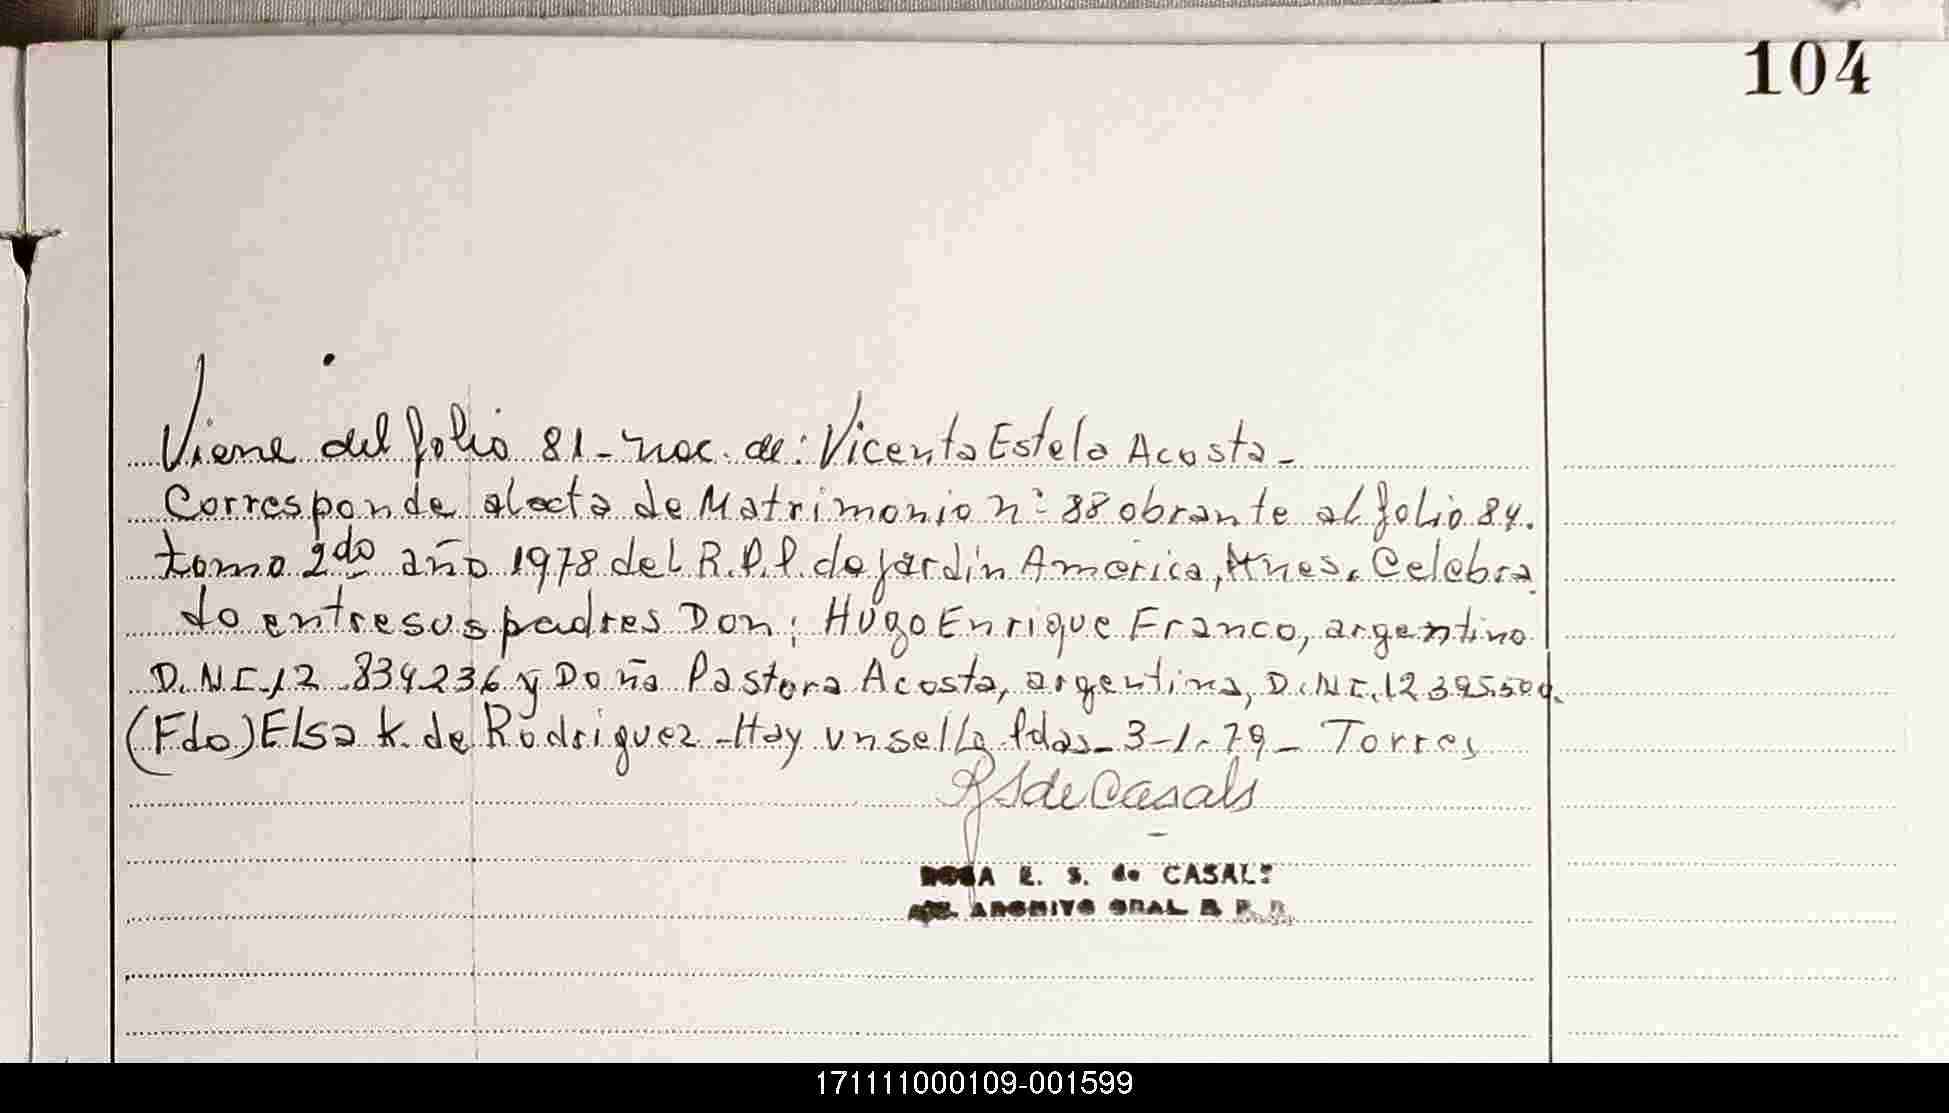 104
Viene del folio 81 - nac. de: Vicenta Estela Acosta -
Corresponde al acta de Matrimonio n° 88 obrante al folio 84.
tomo 2do año 1978 del R.P.P. de Jardin America, Mnes. Celebra
do entre sus padres Don: Hugo Enrique Franco, argentino
D.N.I. 12.834236 y Doña Pastora Acosta, argentina, D.N.I. 12.395.509.
(Fdo) Elsa K. de Rodriguez - Hay un sello. Pdas - 3-1-79 - Torres
RS de Casals
ROSA E. S. de CASALS
ARCHIVO GRAL R. P. P.
171111000109-001599